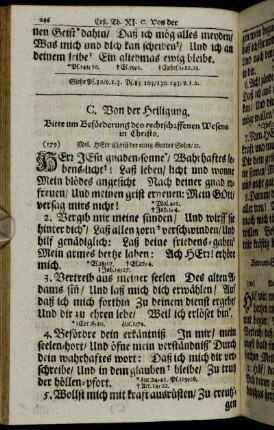 246 Erst. Th. XI. C. Von der
nen Geist dahin/ Daß ich mög alles meyden/
Was mich und dich kan scheiden/ Und ich an
deinem leibe Ein gliedmas ewig bleibe.
C. Von der Heiligung.
Bitte um Beförderung des rechtschaffenen Wesens
in Christo.
(179) Mel. HErr Christ der einig Gottes Sohn/ ꝛc.
HErr JEsu gnaden-sonne/ Wahrhaftes le-
bens-licht! Laß leben/ licht und wonne
Mein blödes angesicht Nach deiner gnad er-
freuen/ Und meinen geist erneuen: Mein GOtt/
versag mirs nicht!
2. Vergib mir meine sünden/ Und wirff sie
hinter dich/ Laß allen zorn verschwinden/ Und
hilf genädiglich: Laß deine friedens-gaben/
Mein armes hertze haben: Ach HErr! erhöre
mich.
3. Vertreib aus meiner seelen Des alten A-
dams sin/ Und laß mich dich erwählen/ Auf
daß ich mich forthin Zu deinem dienst ergebe/
Und dir zu ehren lebe/ Weil ich erlöset bin.
4. Befördre dein erkäntniß In mir/ mein
seelen-hort/ Und öfne mein verständniß Durch
dein wahrhaftes wort: Daß ich mich dir ver-
schreibe/ Und in dem glauben bleibe/ Zu trutz
der höllen-pfort.
5. Wollst mich mit kraft ausrüsten/ Zu creutzi-
gen